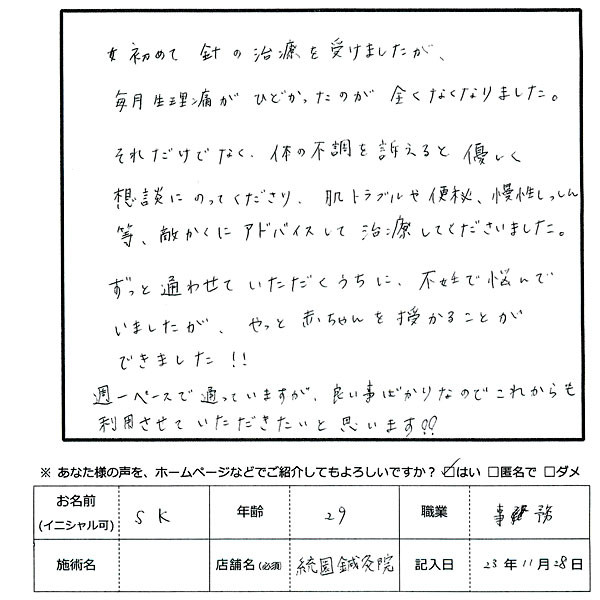 初めて 針の治療を受けましたが、
毎月生理痛がひどかったのが 全くなくなりました。
それだけでなく、体の不調を訴えると優しく
想談にのってくださり、肌トラブルや便秘、慢性しっしん
等、敵かくにアドバイスして治療してくださいました。
ずっと通わせていただくうちに、不妊で悩んで
いましたが、やっと赤ちゃんを授かることが
できました!!
週一ペースで通っていますが、良い事ばかりなのでこれからも
利用させていただきたいと思います!!
※ あなた様の声を、ホームページなどでご紹介してもよろしいですか? ☑はい □匿名で □ダメ
お名前 (イニシャル可) SK 年齢 29 職業 事務
施術名 店舗名(必須) 統園鍼灸院 記入日 23年11月28日